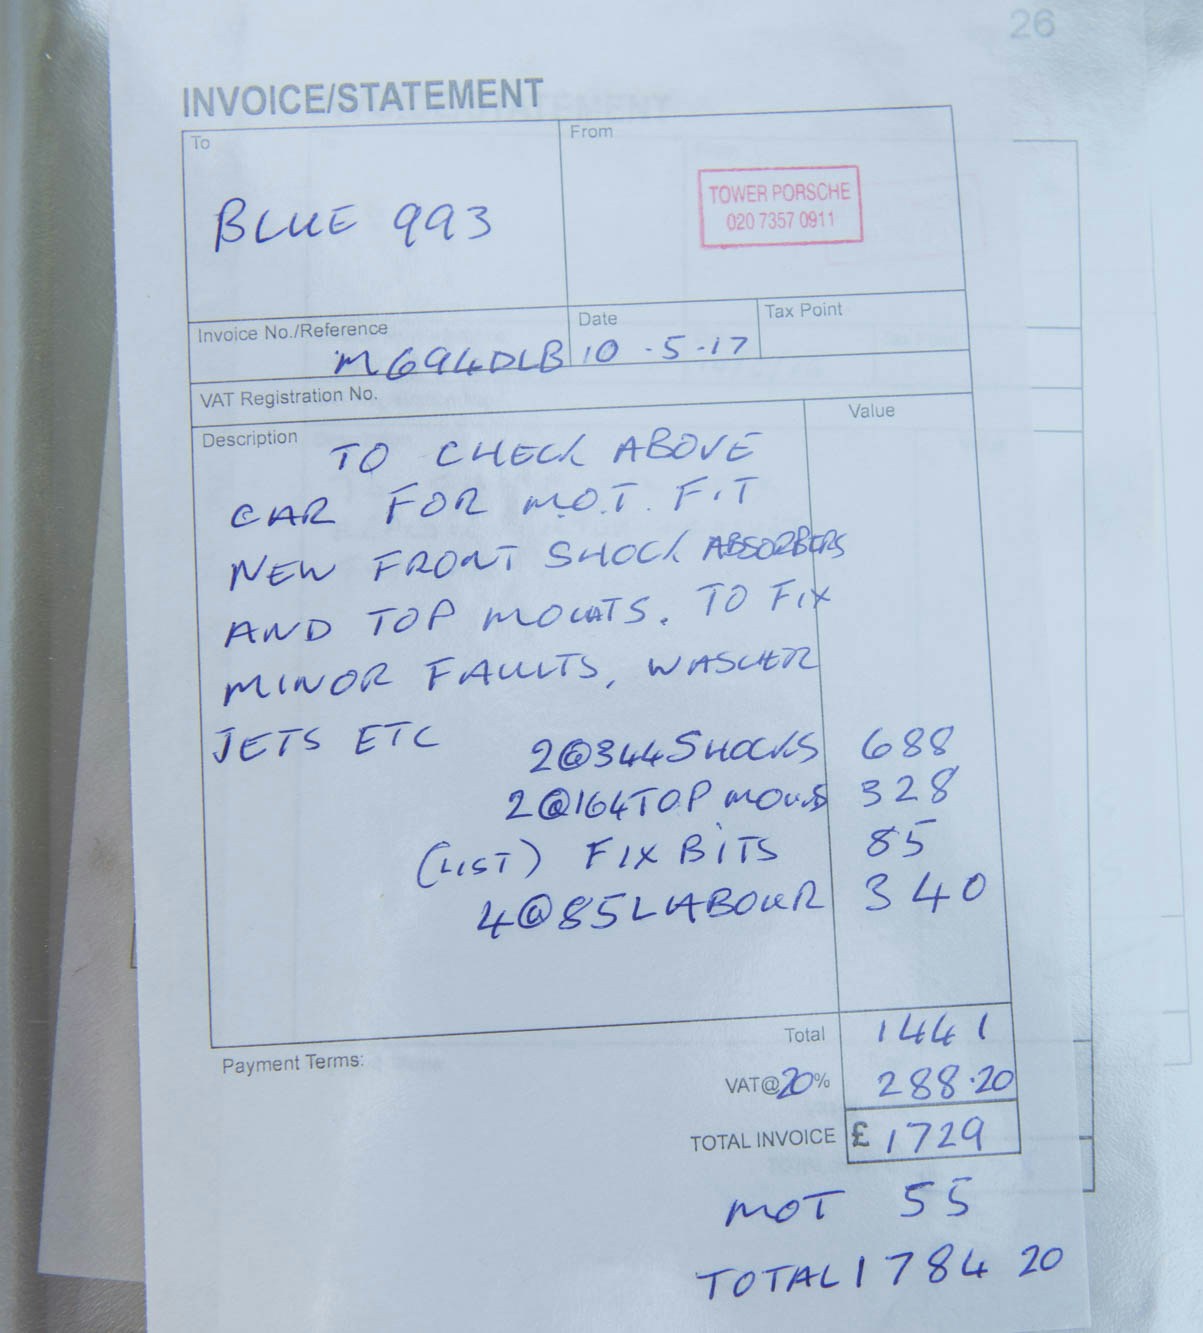 26
INVOICE/STATEMENT
To
From
BLUE 993
TOWER PORSCHE
020 7357 0911
Invoice No./Reference
M694DLB
Date
10 - 5 - 17
Tax Point
VAT Registration No.
Description
Value
TO CHECK ABOVE
CAR FOR M.O.T. FIT
NEW FRONT SHOCK ABSORBERS
AND TOP MOUNTS. TO FIX
MINOR FAULTS, WASHER
JETS ETC
2@344 SHOCKS 688
2@164 TOP MOUNTS 328
(LIST) FIX BITS 85
4@85 LABOUR 340
Total 1441
Payment Terms:
VAT@20% 288.20
TOTAL INVOICE £ 1729
MOT 55
TOTAL 1784 20